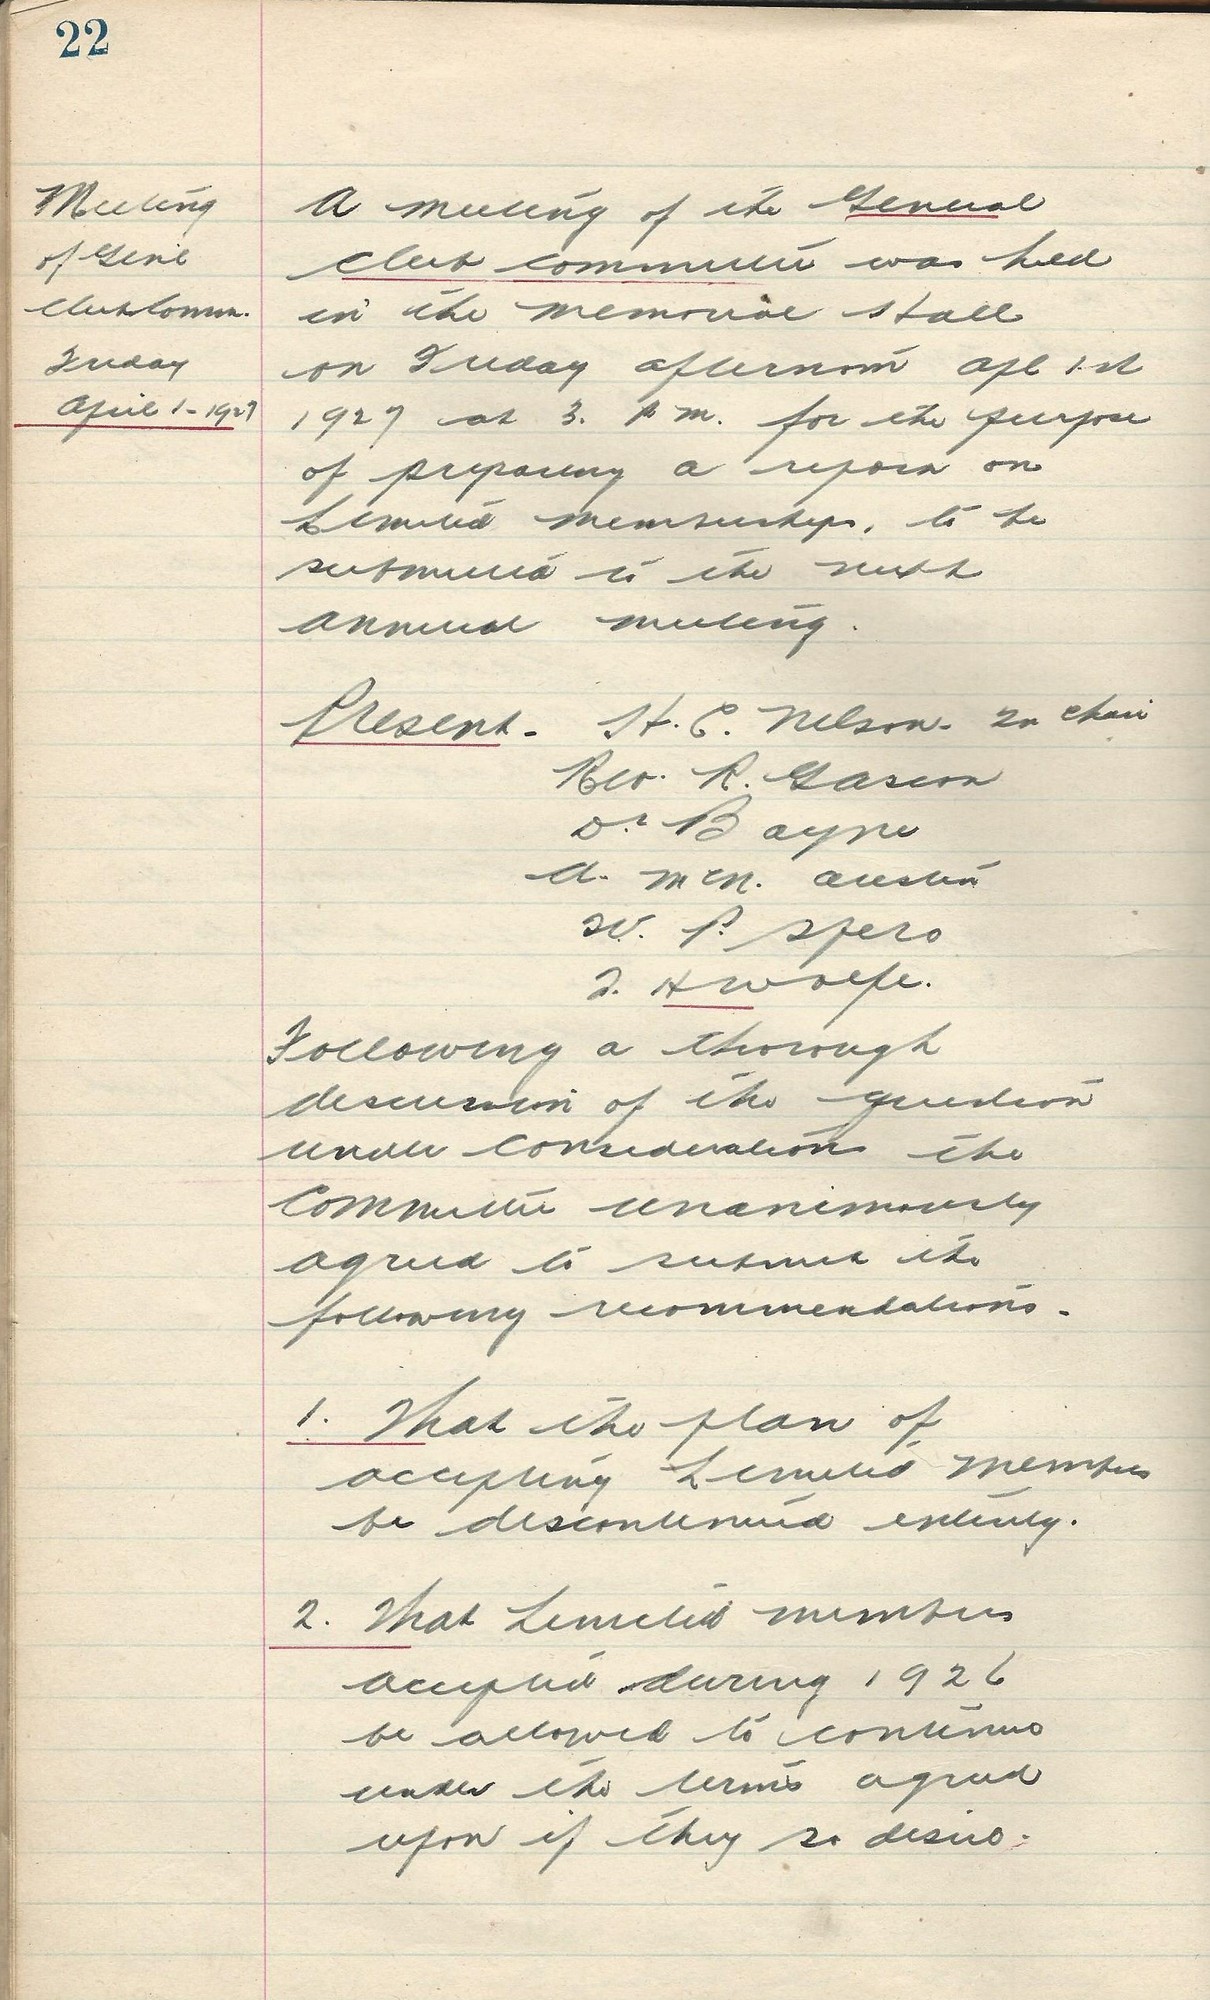 22
Meeting
of Genl
Club Comm.
Friday
April 1 - 1927
A meeting of the General
Club Committee was held
in the Memorial Hall
on Friday afternoon Apl 1st
1927 at 3. P.M. for the purpose
of preparing a report on
Limited Memberships, to be
submitted to the next
annual meeting.
Present - H. E. Nelson - In Chair
Rev. R. Gascon
Dr. Bayne
A. McN. Austin
W. P. Spero
F. H Wolfe.
Following a thorough
discussion of the question
under consideration the
Committee unanimously
agreed to submit the
following recommendations -
1. That the plan of
accepting Limited Members
be discontinued entirely.
2. That Limited members
accepted during 1926
be allowed to continue
under the terms agreed
upon if they so desire.